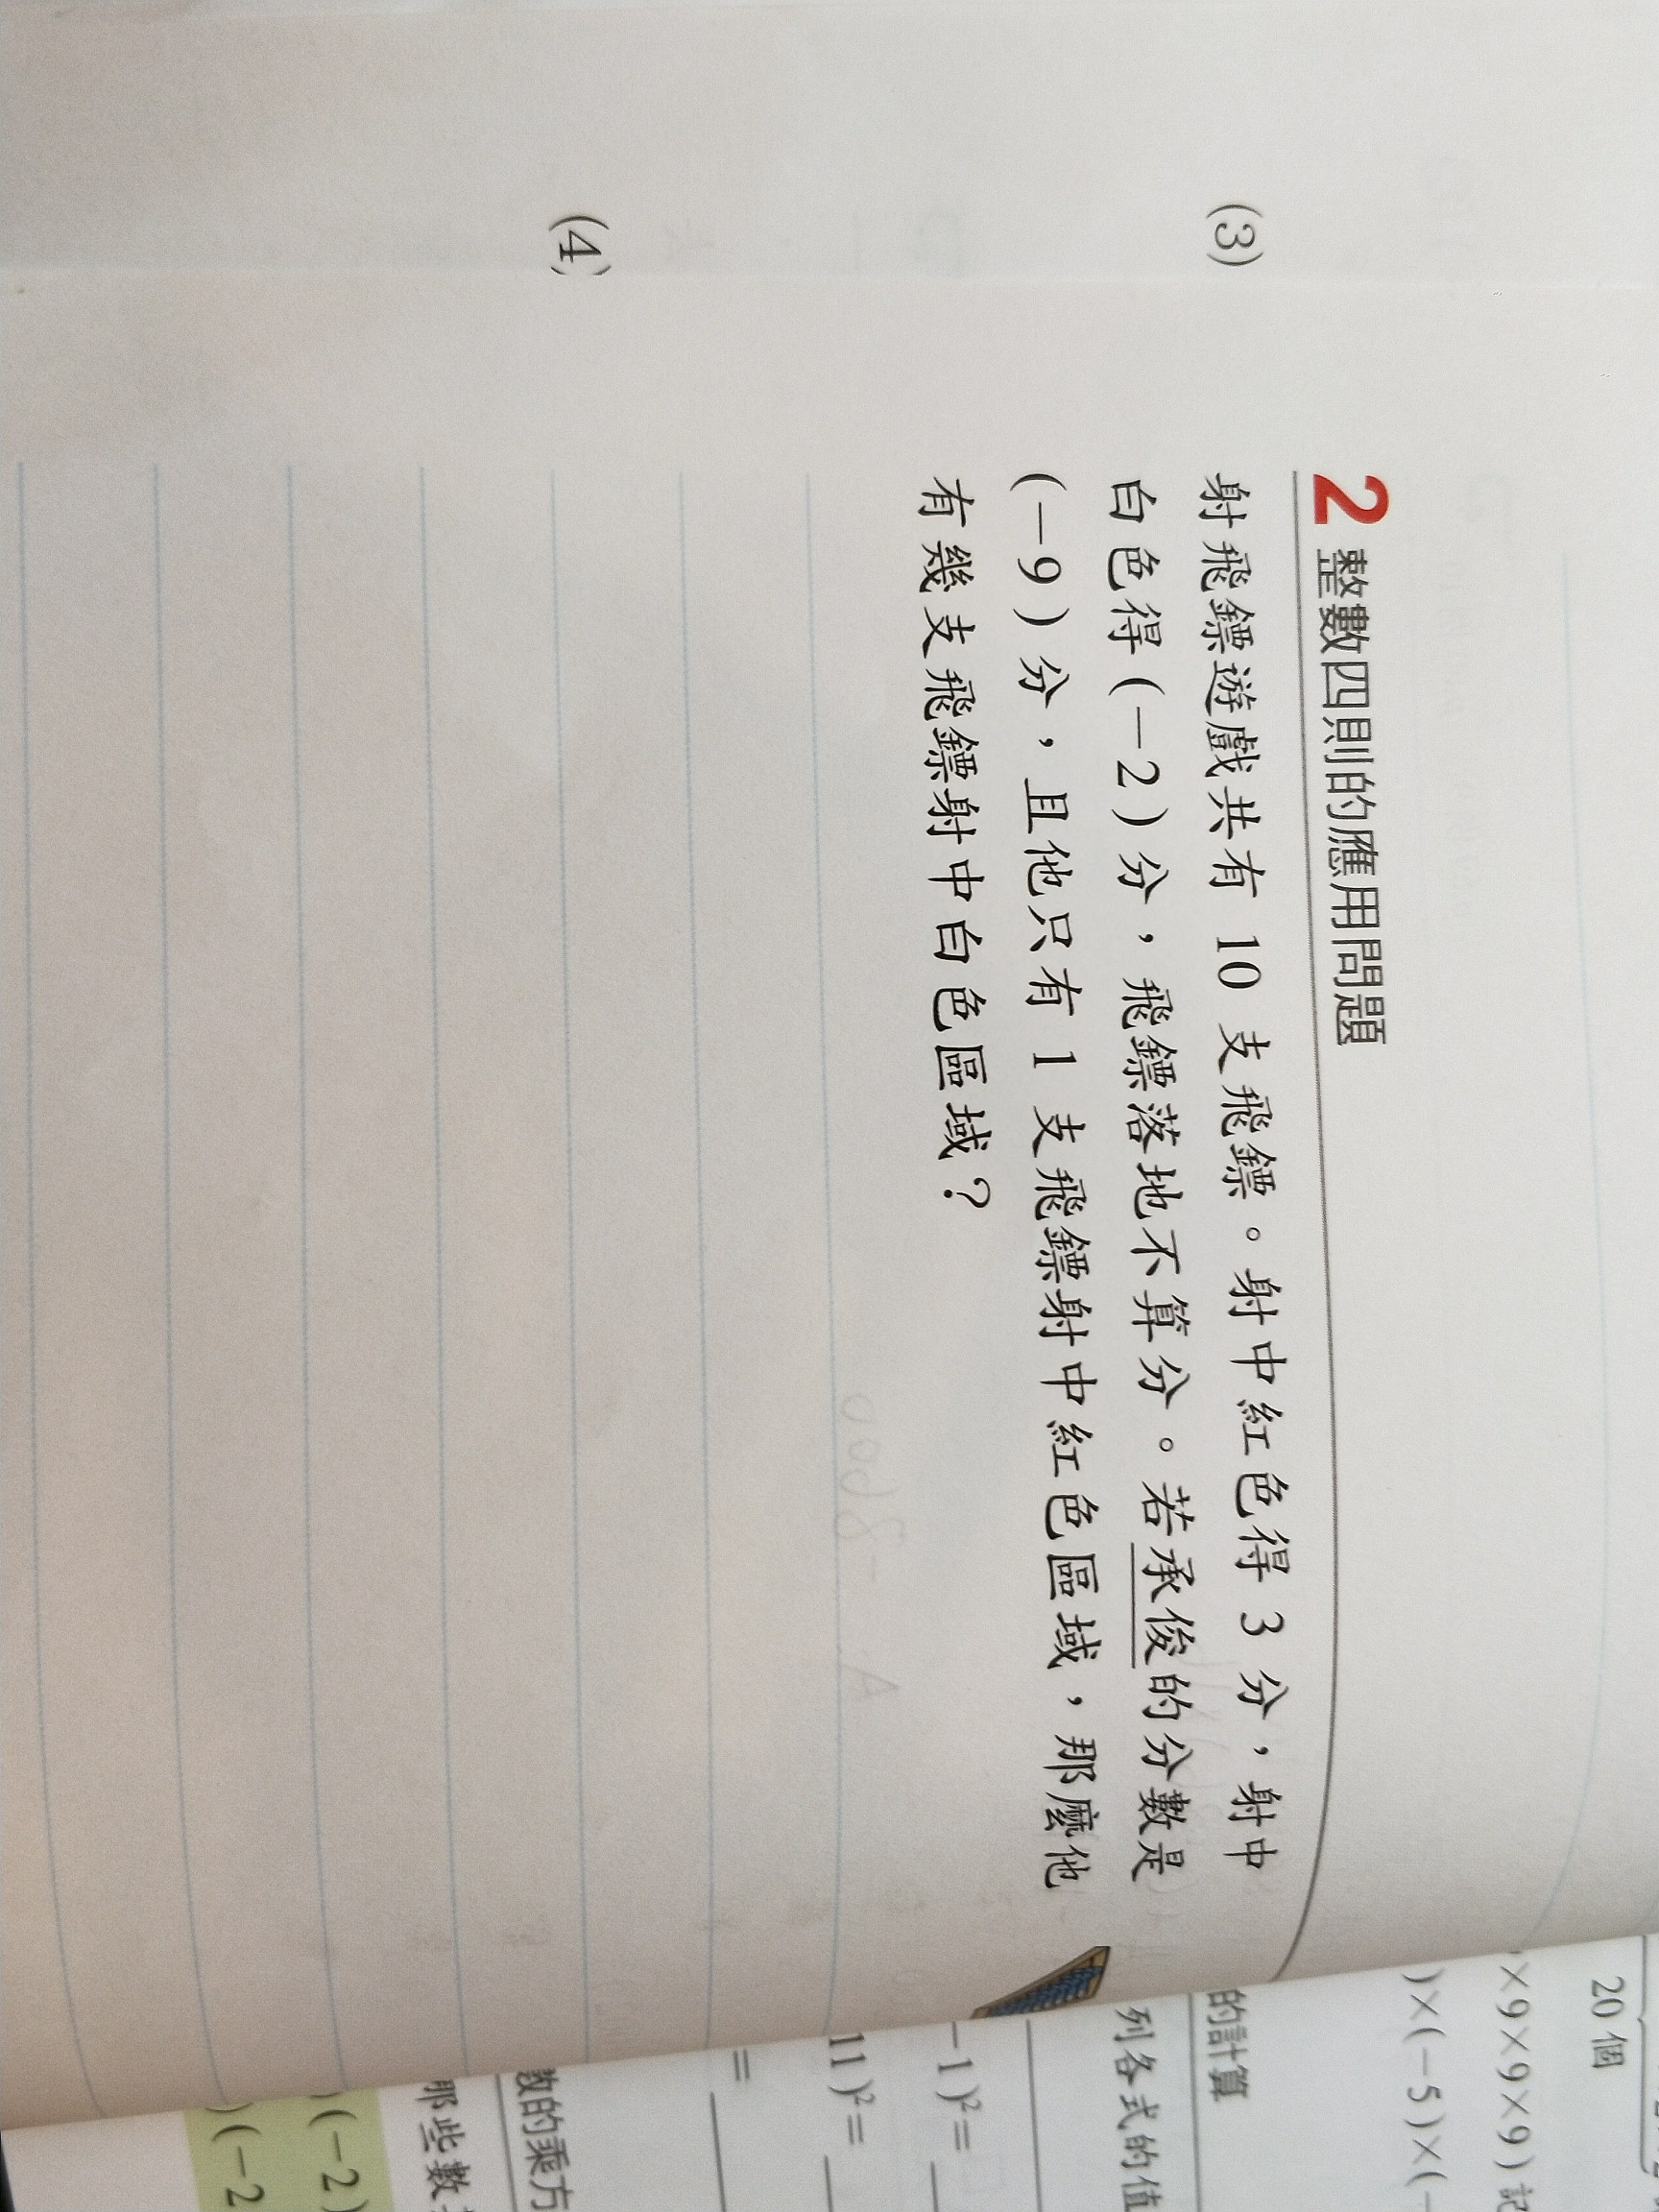 2 整數四則的應用問題
射飛鏢遊戲共有 10 支飛鏢。射中紅色得 3 分，射中
白色得(−2)分，飛鏢落地不算分。若承俊的分數是
(−9)分，且他只有 1 支飛鏢射中紅色區域，那麼他
有幾支飛鏢射中白色區域？
(3)
(4)
20 個
×9×9×9×9)記
)×(−5)×(−
的計算
列各式的值
−1)²=
11)²=
=
數的乘方
那些數
)(−2)
)(−2